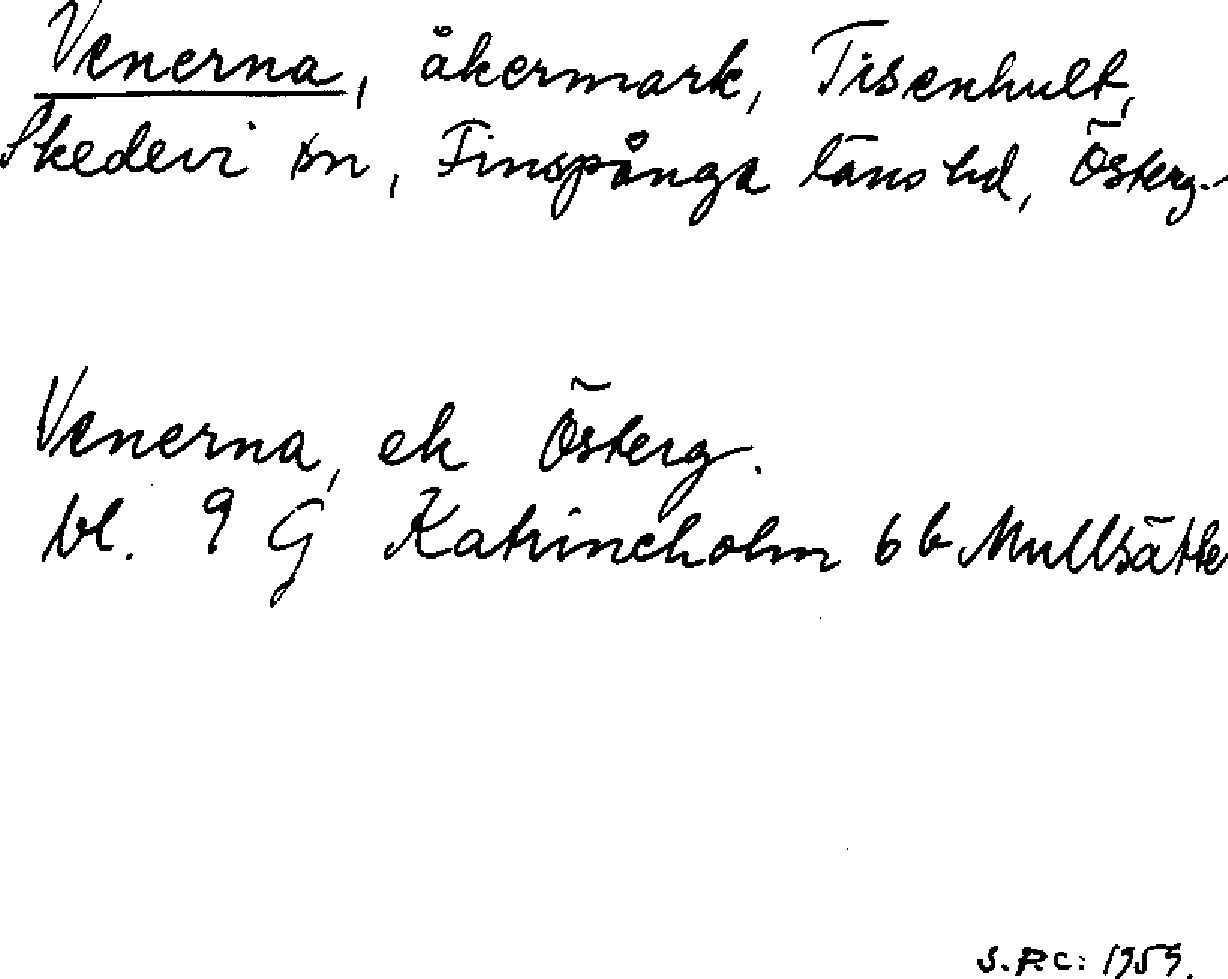 Venerna, åkermark, Tisenhult,
Skedevi sn, Finspånga läns hd, Österg.
Venerna, ek Österg.
bl. 9 G Katrineholm 6 b Mullsätte
S.R.C: 1959.